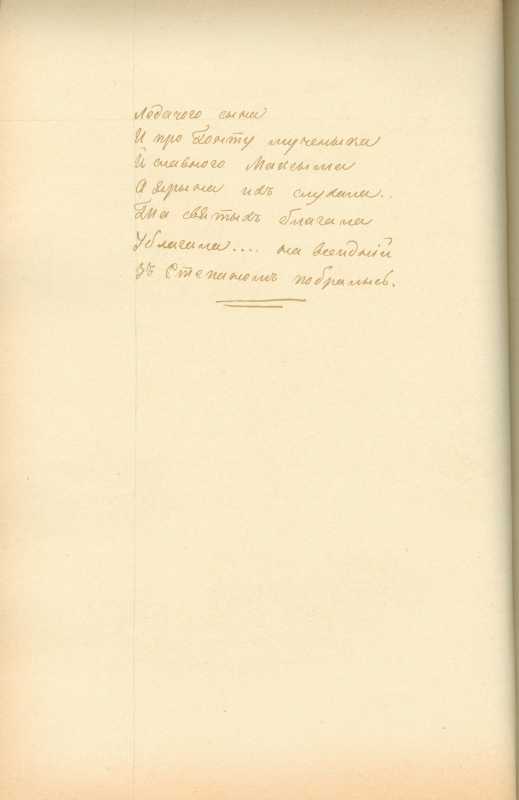 Ледачого сына
И про Гонту мученыка
Й славного Максыма
А Ярына ихъ слухала..
Та святыхъ благала
Ублагала.... на всеидній
Зъ Степаномъ побралысь.